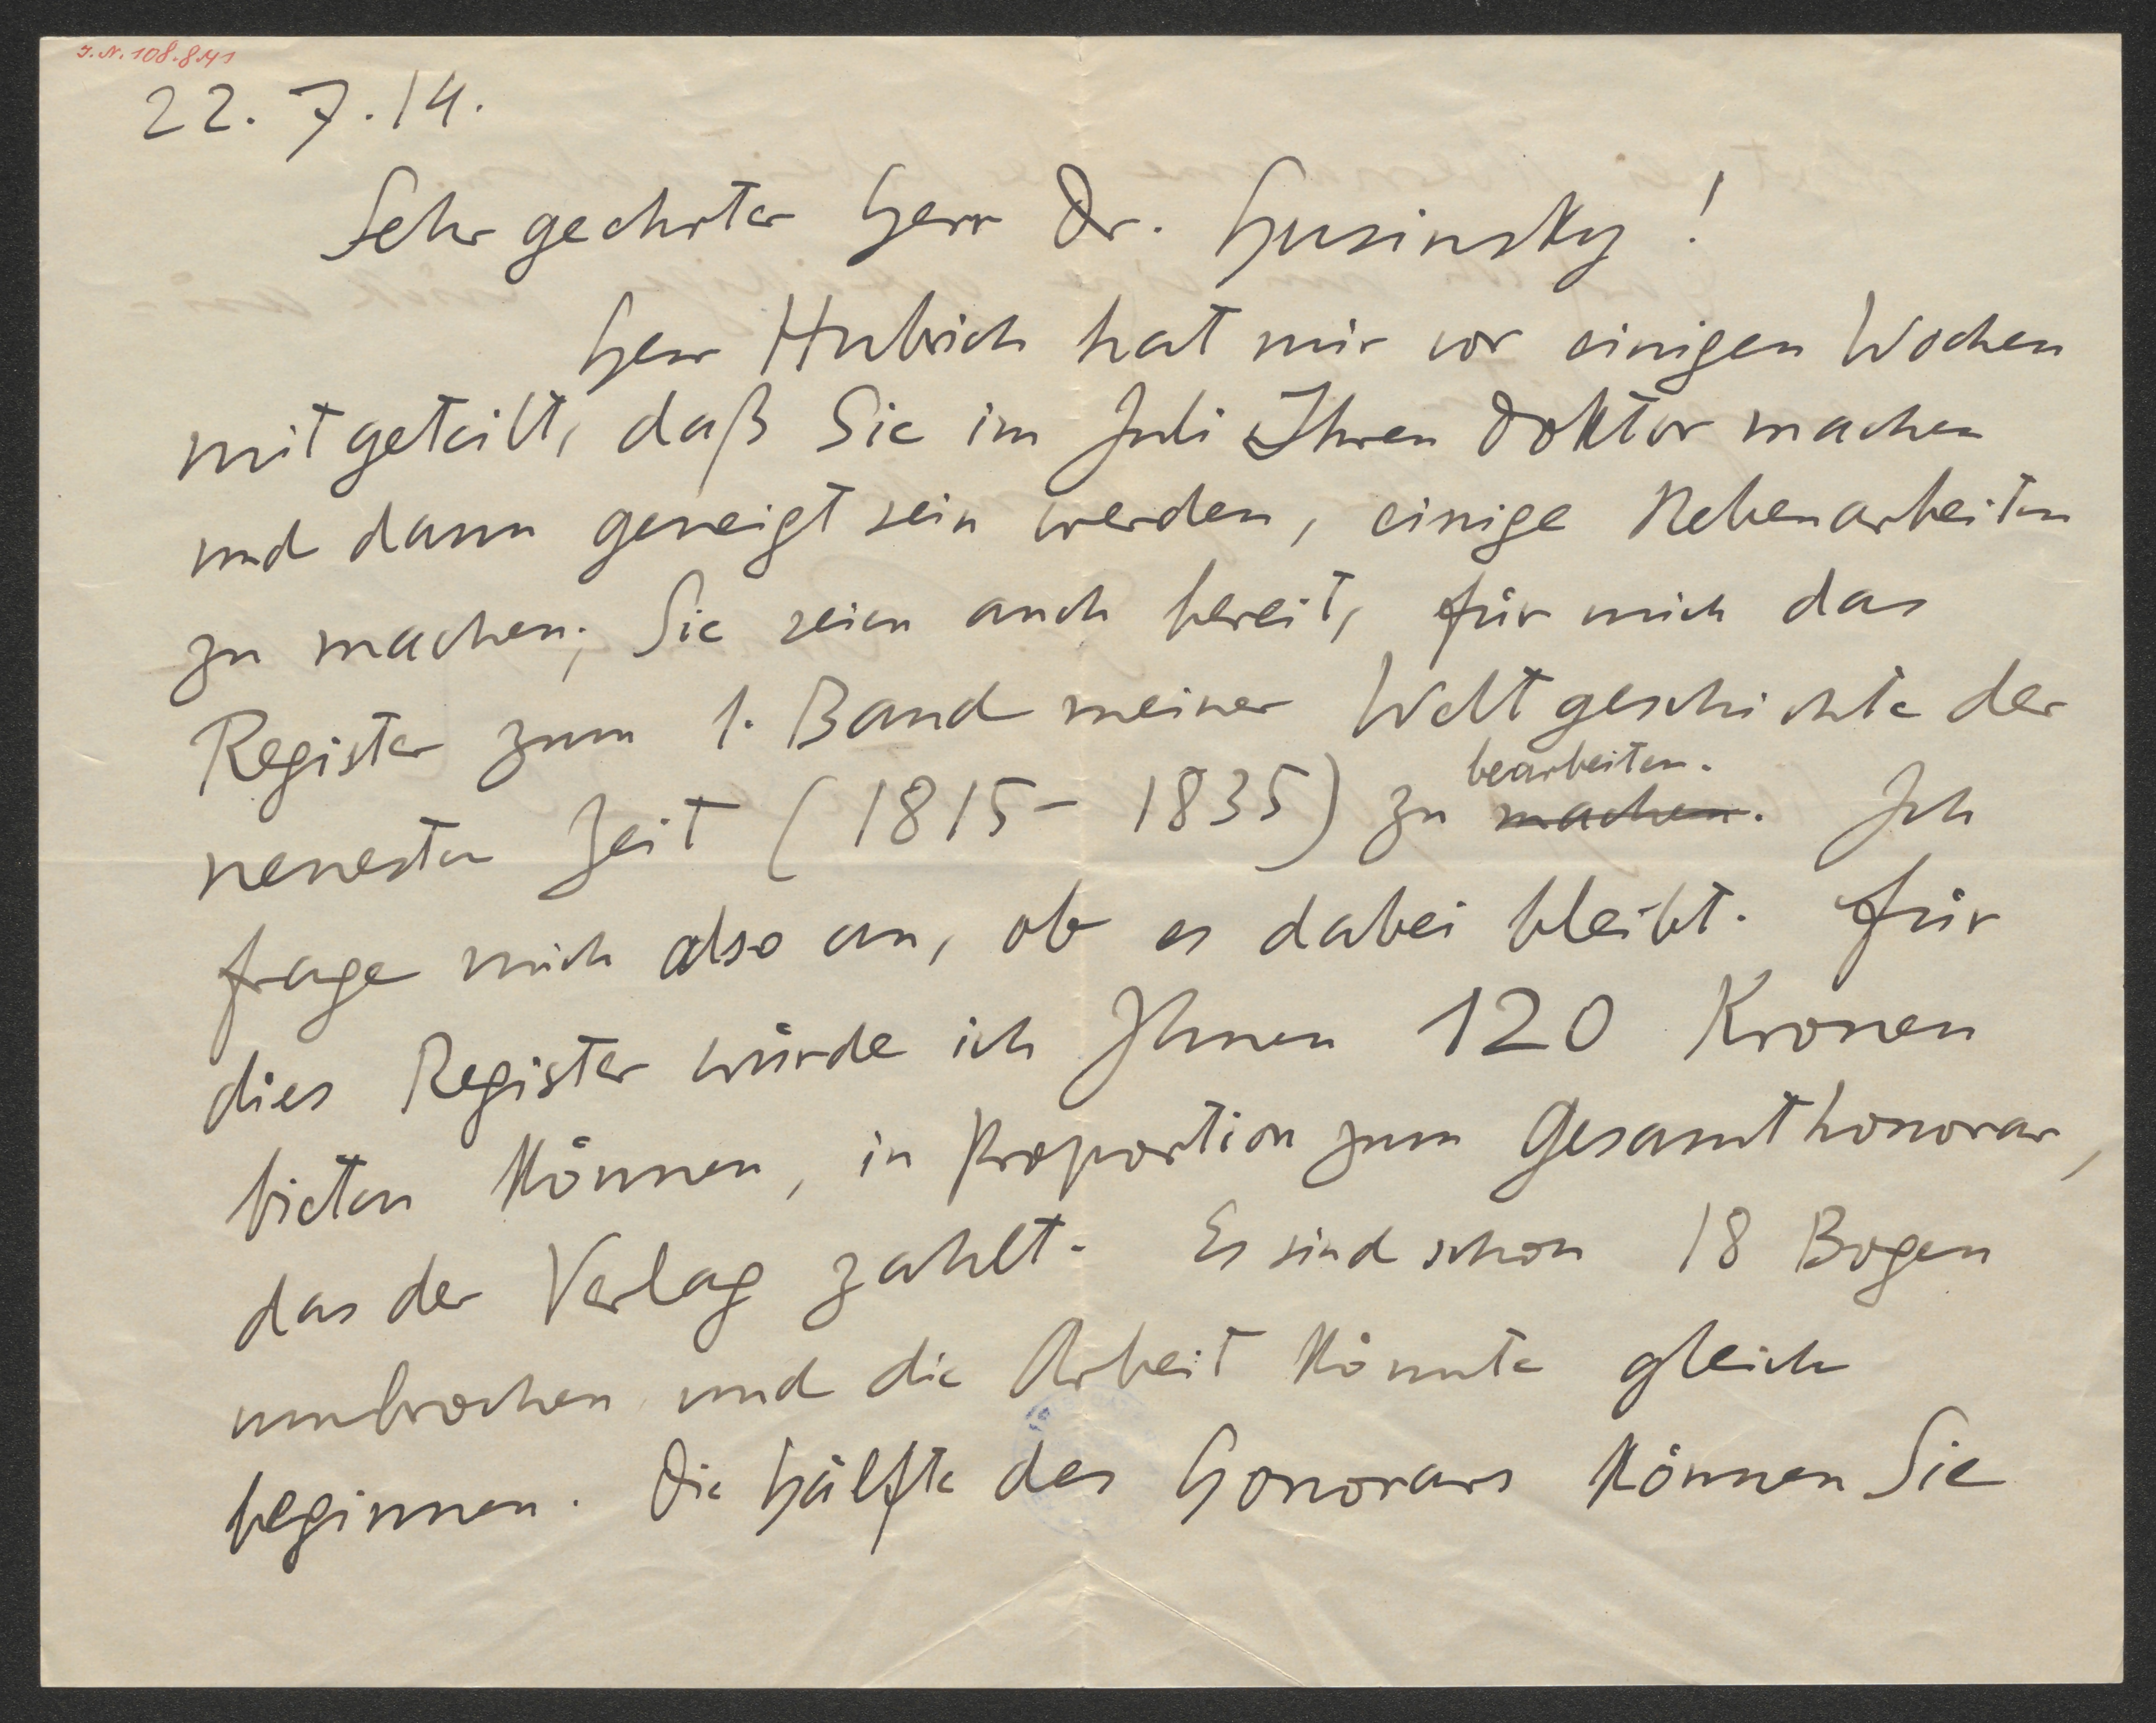 J.N. 108.841
22. 7. 14.
Sehr geehrter Herr Dr. Husinsky!
Herr Hubrich hat mir vor einigen Wochen
mitgeteilt, daß Sie im Juli Ihren Doktor machen
und dann geneigt sein werden, einige Nebenarbeiten
zu machen; Sie seien auch bereit, für mich das
Register zum 1. Band meiner Weltgeschichte der
bearbeiten.
neuesten Zeit (1815-1835) zu machen. Ich
frage mich also an, ob es dabei bleibt. Für
dies Register würde ich Ihnen 120 Kronen
bieten können, in Proportion zum Gesamthonorar,
das der Verlag zahlt. Es sind schon 18 Bogen
umbrochen und die Arbeit könnte gleich
beginnen. Die Hälfte des Honorars können Sie